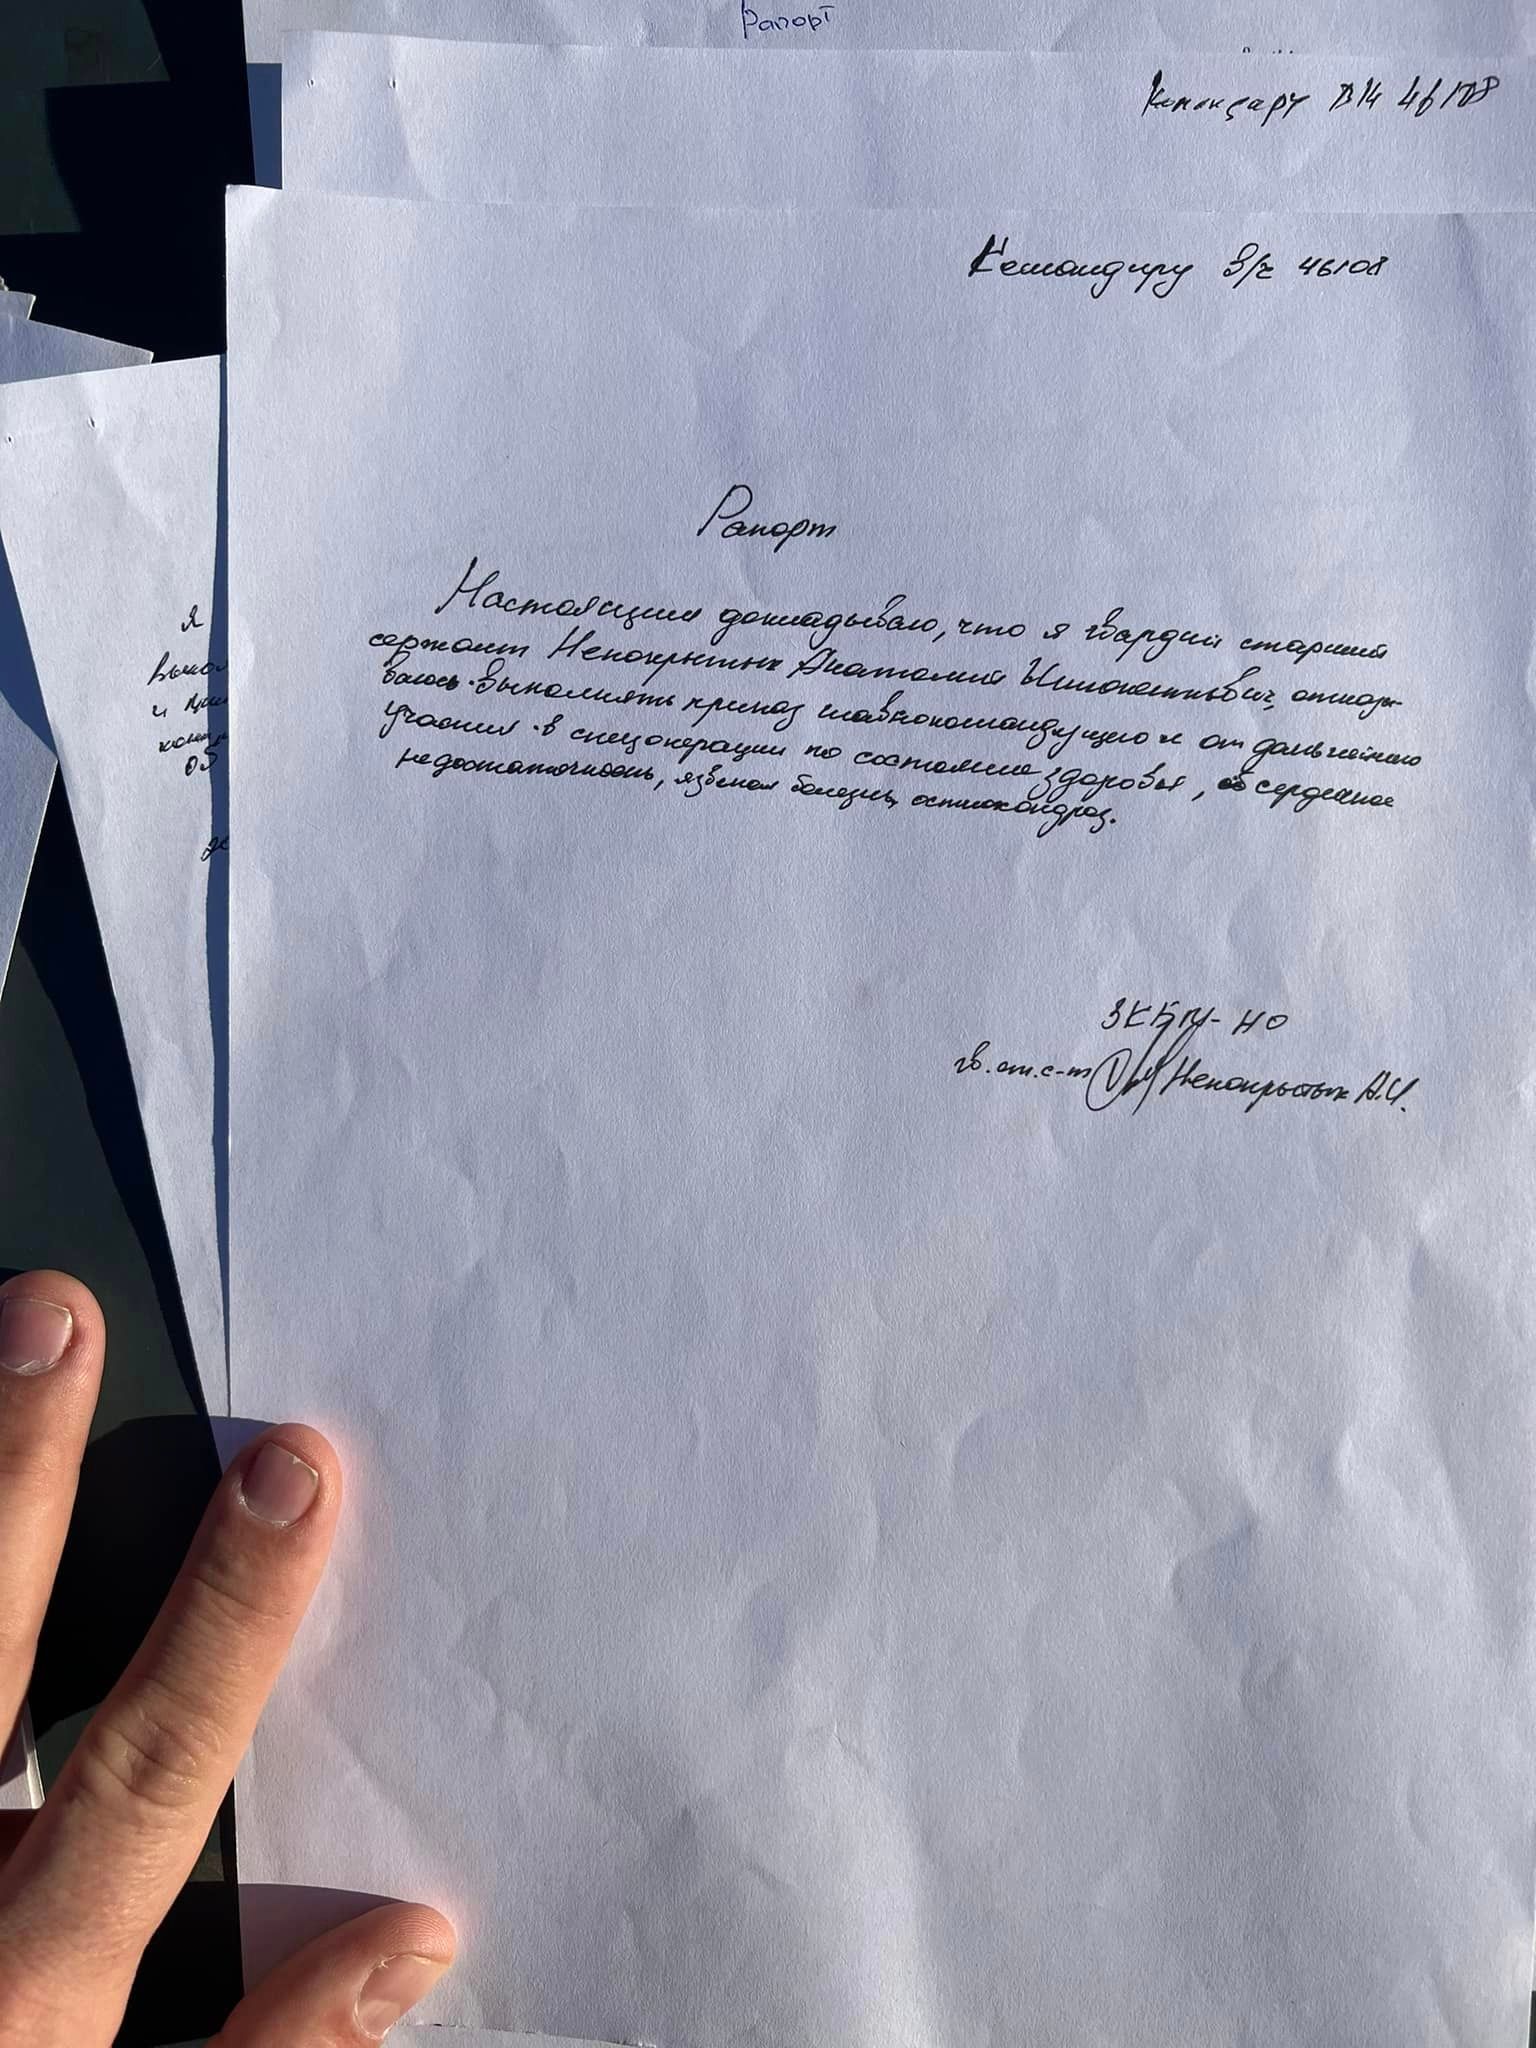 Рапорт
Командиру ВЧ 46108
Командиру в/ч 46108
Рапорт
Настоящим докладываю, что я гвардии старший
сержант Непокрытых Анатолий Иннокентьевич, отказы-
ваюсь выполнять приказ главнокомандующего и от дальнейшего
участия в спецоперации по состоянию здоровья, сердечная
недостаточность, язвенная болезнь, остеохондроз.
гв. ст. с-т Непокрытых А.И.
Я
и
05